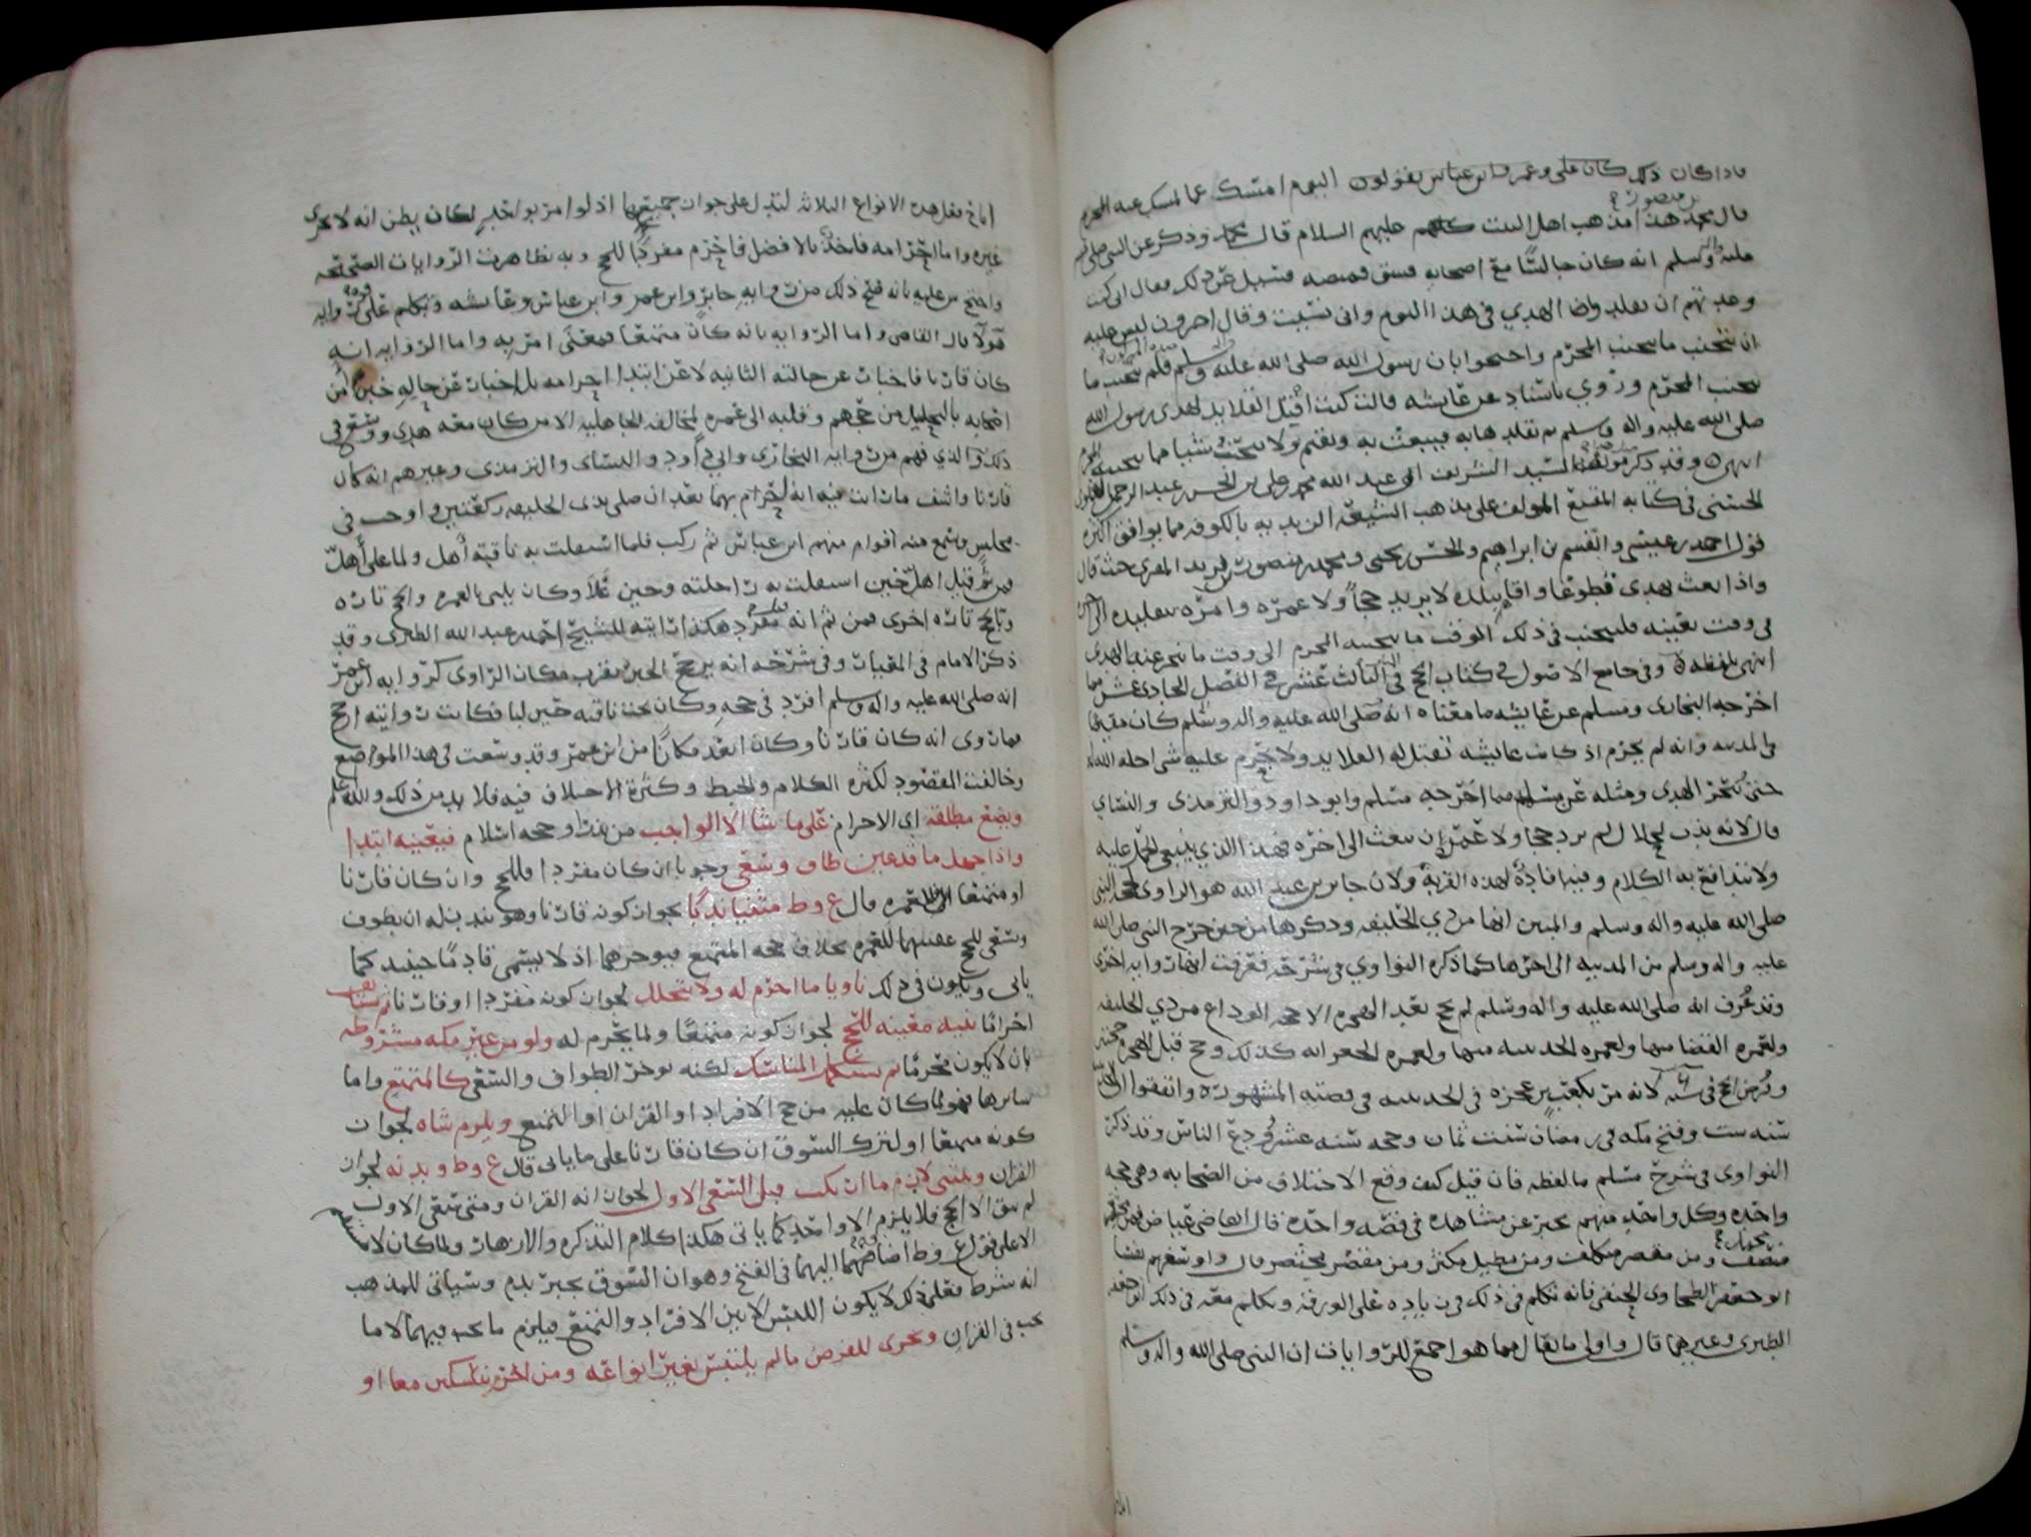 فاذا كان ذلك كان علي وعمر وابن عباس يقولون اليوم امسك عما يمسك عنه المحرم
بن منصور
قال محمد هذا مذهب اهل البيت كلهم عليهم السلام قال محمد وذكر عن النبي صلى الله
عليه واله وسلم انه كان جالسًا مع اصحابه فشق قميصه فسيل عن ذلك فقال اني كنت
وعدتهم ان يقلدوا الهدي في هذا اليوم واني نسيت وقال اخرون ليس عليه
ان يجتنب ما يجتنب المحرم واحتجوا بان رسول الله صلى الله عليه واله وسلم فلم يجتنب ما
يجتنب المحرم وروي باسناد عن عايشه قالت كنت افتل القلايد لهدي رسول الله
صلى الله عليه واله وسلم ثم تقلد هابه فيبعث به ويقيم ولا يجتنب شيا مما يجتنبه المحرم
انتهى وقد ذكر السيد الشريف ابي عبد الله محمد بن علي بن الحسن بن عبد الرحمن
الحسني في كتابه المقنع المولف على مذهب الشيعه الزيديه بالكوفه مما يوافق اكثره
قول احمد بن عيسى والقسم بن ابراهيم والحسن بن يحيى ومحمد بن منصور بن يزيد المقري حيث قال
واذا بعث بهدي تطوعًا واقام ببلده لا يريد حجاً ولا عمره وامره بتقليده
في وقت بعينه فليجتنب في ذلك الوقت ما يجتنبه المحرم الى وقت ما ينحر عنه الهدي
انتهى بلفظه وفي جامع الاصول في كتاب الحج في الباب الثالث عشر في الفصل الحادي عشر مما
اخرجه البخاري ومسلم عن عايشه ما معناه انه صلى الله عليه واله وسلم كان مقيمًا
في المدينه وانه لم يحرم اذ كانت عايشه تفتل له القلايد ولا يحرم عليه شي احله الله له
حتى ينحر الهدي ومثله عن مما اخرجه مسلم وابو داود والترمذي والنساي
قال لانه يذب لحلال لم يرد حجا ولا عمره ان يبعث الى اخره فهذا الذي ينبغي الحمل عليه
ولا يندافع به الكلام وفيها فايدة لهذه القربة ولان جابر بن عبد الله هو الراوي لحج النبي
صلى الله عليه واله وسلم والمبين انها من ذي الحليفه وذكرها من حين خرج النبي صلى الله
عليه واله وسلم من المدينه الى اخرها كما ذكره النواوي في شرحه فعرفت انها روايه اخرى
وقد عُرف انه صلى الله عليه واله وسلم لم يحج بعد الهجره الا حجه الوداع من ذي الحليفه
ولعمره القضا منها ولعمره الحديبيه منها ولعمره الجعرانه كذلك وحج قبل الهجره حجتين
وفرض الحج في سنه لانه مر بكعب بن عجره في الحديبيه في قصته المشهوره واتفقوا
سنه ست وفتح مكه في رمضان سنه ثمان وحجه سنه عشر ودع الناس وقد ذكر
النواوي في شرح مسلم ما لفظه فان قيل كيف وقع الاختلاف من الصحابه وهي حجه
واحده وكل واحد منهم يخبر عن مشاهده في قصه واحده قال القاضي عياض
منصف ومن مقصر متكلف ومن مطيل مكثر ومن مقتصر مختصر قال واوسعهم نفسا
ابو جعفر الطحاوي الحنفي فانه تكلم في ذلك في زياده على الف ورقه وتكلم معه في ذلك ابو جعفر
الطبري وغيرهما قال واولى ما يقال مما هو اجمع للروايات ان النبي صلى الله واله وسلم
اباح فعل هذه الانواع الثلاثه ليدل على جواز جميعها اذ لو امر بواحد لكان يظن انه لا يجزي
غيره واما احرامه فاخذ بالافضل فاحرم مفردًا للحج وبه تظاهرت الروايات الصحيحه
واحتج من عليه بانه صح ذلك من روايه جابر وابن عمر وابن عباس وعايشه وتكلم على روايه
قولا قال القاضي واما الروايه بانه كان متمتعًا فمعنى امر به واما الروايه انه
كان قارنا فاخبار عن حالته الثانيه لا عن ابتدا احرامه بل اخبار عن حاله حين امر
اصحابه بالتحليل من حجهم وقلبه الى عمره لمخالفه الجاهليه الا من كان معه هدي ووسع في
ذلك والذي فهم من روايه البخاري وابي داود والنساي والترمذي وغيرهم انه كان
قارنا واشف ما رايت فيه انه احرم بهما بعد ان صلى بذي الحليفه ركعتين واوجب في
مجلس وسمع منه اقوام منهم ابن عباس ثم ركب فلما استقلت به ناقته أهل ولما علا أهل
فمن ثم قيل اهل حين استقلت به راحلته وحين علا وكان يلبي بالعمره والحج تاره
وبالحج تاره اخرى فمن ثم انه مفرد هكذا رايته للشيخ احمد بن عبد الله الطبري وقد
ذكر الامام في الغيات وفي شرحه انه يرجح الخبر بقرب مكان الراوي كروايه ابن عمر
انه صلى الله عليه واله وسلم افرد في حجه وكان تحت ناقته حين لبا فكانت روايته ارجح
مما روي انه كان قارنا وكان ابعد مكانًا من ابن عمر وقد وسعت في هذا الموضع
وخالفت المقصود لكثره الكلام والخبط وكثرة الاختلاف فيه فلا بد من ذلك والله اعلم
ويضع مطلقه اي الاحرام على ما شا الا الواجب من نذر او حجه اسلام فيعينه ابتدا
واذا جهل ما قد عين طاف وسعى وجوبا ان كان مفردا فللحج وان كان قارنا
او متمتعا فللعمره قال ع وط متفيا ندبًا بجواز كونه قارنا وهو يندب له ان يطوف
ويسعى للحج عقيبهما للعمره بخلاف حجه المتمتع فيوخرهما اذ لا يسمى قادمًا حينيذ كما
ياتي ويكون في ذلك ناويا ما احرم له ولا يتحلل لجواز كونه مفردا او قارنا ثم يستانف
احرامًا بنيه معينه للحج لجواز كونه متمتعًا ولما يحرم له ولو من غير مكه مشروطه
بان لا يكون محرمًا ثم يستكمل المناسك لكنه يوخر الطواف والسعي كالمتمتع واما
سايرها فهو لما كان عليه من حج الافراد او القران او التمتع ويلزم شاه لجواز
كونه متمتعا او لترك السوق ان كان قارنا على ما ياتي قال ع وط وبدنه لجواز
القران ومتى لزم ما ارتكب قبل السعي الاول لجواز انه القران ومتى سعى الاول
لم يبق الا الحج فلا يلزم الا واحد كما ياتي هكذا كلام التذكره والازهار ولما كان لا
الا على قول ع وط اضافهما اليهما في الفتح وهو ان السوق يجبر بدم وسياتي للمذهب
انه شرط فعلى ذلك لا يكون اللبس الا بين الافراد والتمتع فيلزم ما يجب فيهما لا ما
يجب في القران ويجزي للفرض ما لم يلتبس بغير انواعه ومن احرم بنسكين معا او